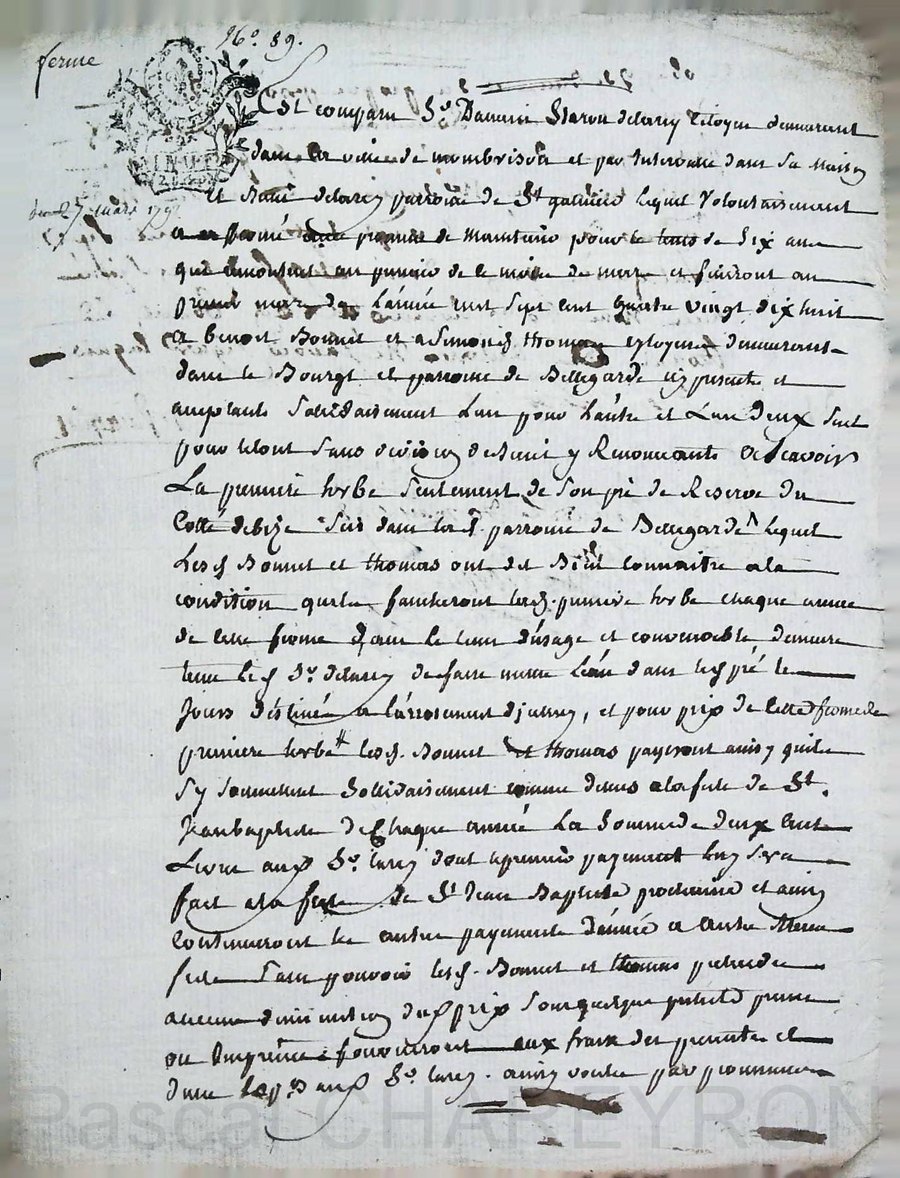 ferme
N°. 89.
du 27 mars 179
Est comparu Sr. Staron delarey Citoyen demeurant
dans la ville de Mombrison et par Intervalle dans sa maison
delarey parroisse de St galmier lequel Volontairement
a affermé promis de maintenir pour le tems de six ans
qui au premier de ce mois de mars et finiront au
premier mars de L'année mil sept cent quatre vingt dix huit
a benoit Bonnet et a thomas citoyens demeurants
dans le Bourgt et parroisse de Bellegarde icy presents et
acceptants sollidairement L'un pour L'autre et L'un deux seul
pour letout sans division y Renonceants a Scavoir
La premiere herbe seulement de son pré de Reserve du
Cotté debize Sis dans lad. parroisse de Bellegarde lequel
Lesd Bonnet et thomas ont dit Bien Connaitre ala
condition quils faucheront lesd. premiere herbe chaque année
de cette ferme dans le tems dusage et convenable demeure
tenu Led Sr. delarey de faire mettre L'eau dans lesd pré les
Jours destinés a L'arrosement djcelluy, et pour prix de cette ferme de
premiere herbe lesd. Bonnet et thomas payeront ainsy quils
sy soumettent sollidairement comme dessus ala fete de St.
Jean baptiste de Chaque année La somme de deux cent
Livres aud Sr. larey dont le premier payement luy sera
fait ala fete de St Jean Baptiste prochaine et ainsy
Continueront les autres payements d'année a autre
fete sans pouvoir lesd. Bonnet et thomas pretendre
aucune diminution dud prix sous quelque pretexte
ou Imprévu fourniront aux frais des presentes et
d'une aud Sr. larey. ainsy voulu par promesses
Pascal CHAREYRON